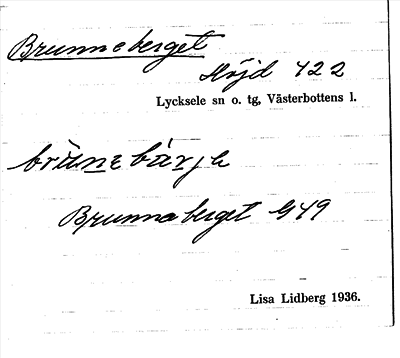 Brunneberget
Höjd 422
Lycksele sn o. tg, Västerbottens l.
Brunnaberget G49
Lisa Lidberg 1936.